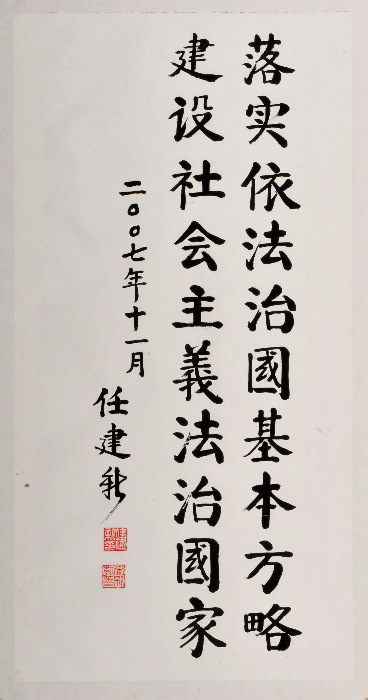 落实依法治國基本方略
建设社会主義法治國家
二〇〇七年十一月
任建新